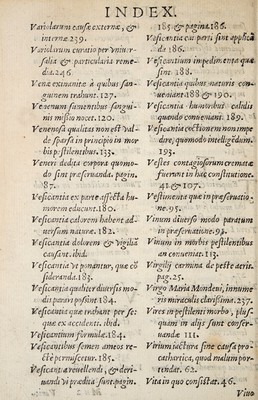 INDEX.
Variolarum causæ externæ, &
internæ 239.
Variolarum curatio per vniuer
salia & particularia reme
dia. 246.
Vena exinanitæ à quibus san-
guinem traducunt. 127.
Venenum fumentibus sangui-
nis missio nocet. 120.
Venenosa qualitas non est val-
de sparsa in principio in mor
bis pestilentibus. 133.
Veneri dedita corpora quomo-
do sint præseruanda. pagin.
87.
Vesicantia ex parte affecta hu-
morem educunt. 180.
Vesicantia calorem habent ad-
uersum naturæ. 182.
Vesicantia dolorem & vigiliā
causant. ibid.
Vesicantia vt ponantur, quæ cō
sideranda. 183.
Vesicantia qualiter diuersis mo-
dis parari possint 184.
Vesicantia quæ trahant per se:
quæ ex accidenti. ibid.
Vesicantium formulæ. 184.
Vesicantibus semen ameos re-
ctè permiscetur. 185.
Vesicantia reuellendi, & deri-
uandi vi prædita sunt. pagin.
185. & pagina 186.
Vesicantia cui parti sint applicā
da 186.
Vesicantium impedimenta quæ
sint. 188.
Vesicantia quibus naturis con-
ueniant 188 & 190.
Vesicantia humoribus calidis
quando conueniant. 189.
Vesicantia coctionem non impe
dire, quomodo intelligendum.
193.
Vestes contagiosorum crematæ
fuerunt in hac constitutione.
41. & 107.
Vestimenta quæ in præseruatio-
ne. 95.
Vinum diuerso modo paratum
in præseruatione. 93.
Vinum in morbis pestilentibus
an conueniat. 113.
Virgilij carmina de peste aeris.
pag. 25.
Virgo Maria Mondeui, innume-
ris miraculis clarissima. 237.
Vires in pestilenti morbo, plus-
quam in alijs sunt conser-
uandæ 111.
Virium iactura sine causa pro-
cathartica, quod malum por-
tendat. 62.
Vita in quo consistat. 46.
Viuo